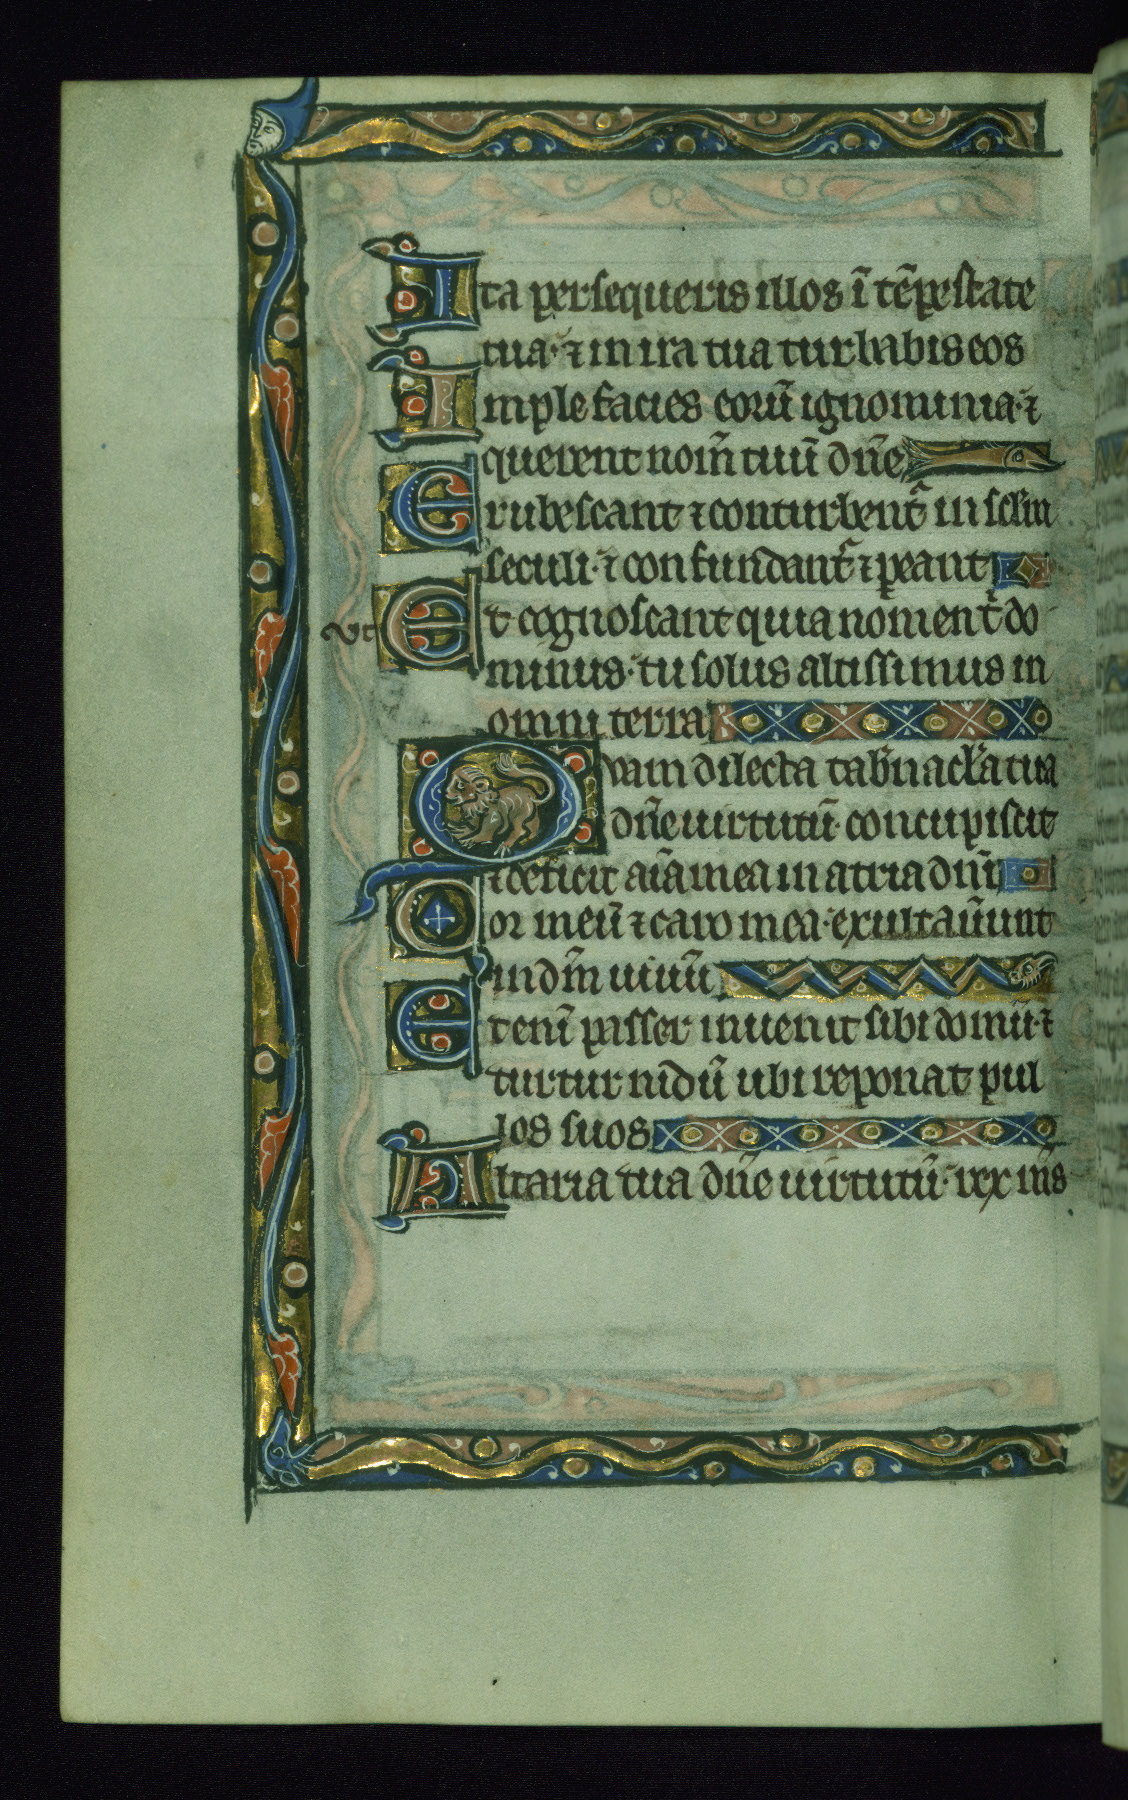 Ita persequeris illos ī tēpestate
tua· ⁊ in ira tua turbabis eos
Imple facies eorū ignominia· ⁊
querent nom̄ tuū dn̄e
Erubescant ⁊ conturbent᷑ in sclm̄
seculi· ⁊ confundant᷑ ⁊ ꝑeant
Vt Et cognoscant quia nomen t᷑ do
minus· tu solus altissimus in
omni terra
Quam dilecta tab̄nacl̄a tua
dn̄e uirtutū· concupiscit
⁊ deficit aīa mea in atria dn̄i
Cor meū ⁊ caro mea· exultaūunt
in dm̄ uiuū
Etenī passer inuenit sibi domū· ⁊
turtur nidū ubi reponat pul
los suos
Altaria tua dn̄e uirtutū· rex m̄s